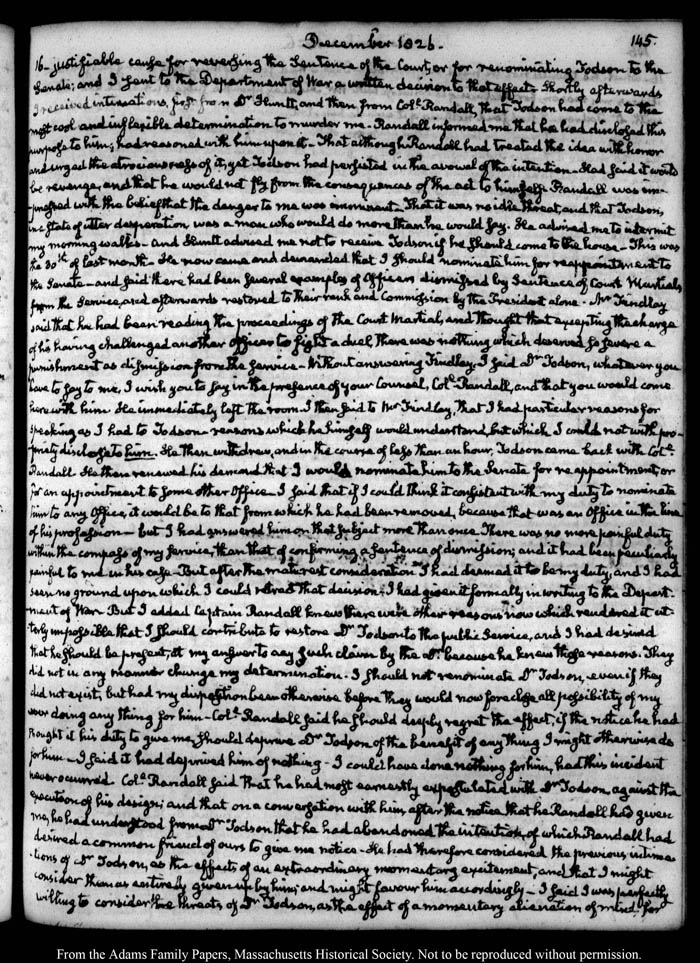 December 1826.
145.
16- justifiable cause for reversing the Sentence of the Court, or for renominating Todson to the
Senate; and I sent to the Department of War a written decision to that effect. Shortly afterwards
I received intimations, first from Dr Huntt, and then from Coll. Randall, that Todson had come to the
most cool and inflexible determination to murder me. Randall informed me that he had disclosed this
purpose to him; had reasoned with him upon it. That although Randall had treated the idea with horror
and urged the atrociousness of it, yet Todson had persisted in the avowal of the intention. Had said it would
be revenge, and that he would not fly from the consequences of the act to himself. Randall was im-
pressed with the belief that the danger to me was imminent. That it was no idle threat, and that Todson,
in a State of utter desperation was a man who would do more than he would say. He advised me to intermit
my morning walks- And Huntt advised me not to receive Todson if he should come to the house- This was
the 30th of last month- He now came and demanded that I should nominate him for reappointment to
the Senate- and said there had been several examples of Officers dismissed by Sentence of Court Martials
from the Service, and afterwards restored to their rank and Commission by the President alone. Mr Findlay
said that he had been reading the proceedings of the Court Martial, and thought that excepting the charge
of his having challenged another Officer to fight a duel, there was nothing which deserved so severe a
punishment as dismission from the Service- Without answering Findlay, I said Dr Todson, whatever you
have to say to me, I wish you to say in the presence of your Counsel, Coll. Randall, and that you would come
here with him. He immediately left the room. I then said to Mr Findlay, that I had particular reasons for
speaking as I had to Todson- reasons which he himself would understand, but which I could not with pro-
priety disclose to him. He then withdrew, and in the course of less than an hour, Todson came back with Coll.
Randall. He then renewed his demand that I would nominate him to the Senate for reappointment, or
for an appointment to some other Office- I said that if I could think it consistent with my duty to nominate
him to any Office, it would be to that from which he had been removed, because that was an Office in the line
of his profession- but I had answered him on that subject more than once. There was no more painful duty
within the compass of my service, than that of confirming a Sentence of dismission; and it had been peculiarly
painful to me in his case- But after the maturest consideration I had deemed it to be my duty, and I had
seen no ground upon which I could retread that decision; I had given it formally in writing to the Depart-
ment of War- But I added Captain Randall knew there were other reasons now which rendered it ut-
terly impossible that I should contribute to restore Dr Todson to the public Service, and I had desired
that he should be present, at my answer to any such claim by the Dr. because he knew those reasons. They
did not in any manner change my determination. I should not renominate Dr Todson, even if they
did not exist; but had my disposition been otherwise before they would now foreclose all possibility of my
ever doing any thing for him- Coll. Randall said he should deeply regret the effect, if the notice he had
thought it his duty to give me, should deprive Dr Todson of the benefit of any thing I might otherwise do
for him- I said it had deprived him of nothing- I could have done nothing for him, had this incident
never occurred. Coll. Randall said that he had most earnestly expostulated with Dr Todson, against the
execution of his design; and that on a conversation with him, after the notice that he Randall had given
me, he had understood from Dr Todson that he had abandoned the intention, of which Randall had
desired a common friend of ours to give me notice- He had therefore considered the previous intima-
tions of Dr Todson, as the effects of an extraordinary momentary excitement, and that I might
consider them as entirely given up by him; and might favour him accordingly- I said I was perfectly
willing to consider the threats of Dr Todson, as the effect of a momentary alienation of mind. For
From the Adams Family Papers, Massachusetts Historical Society. Not to be reproduced without permission.